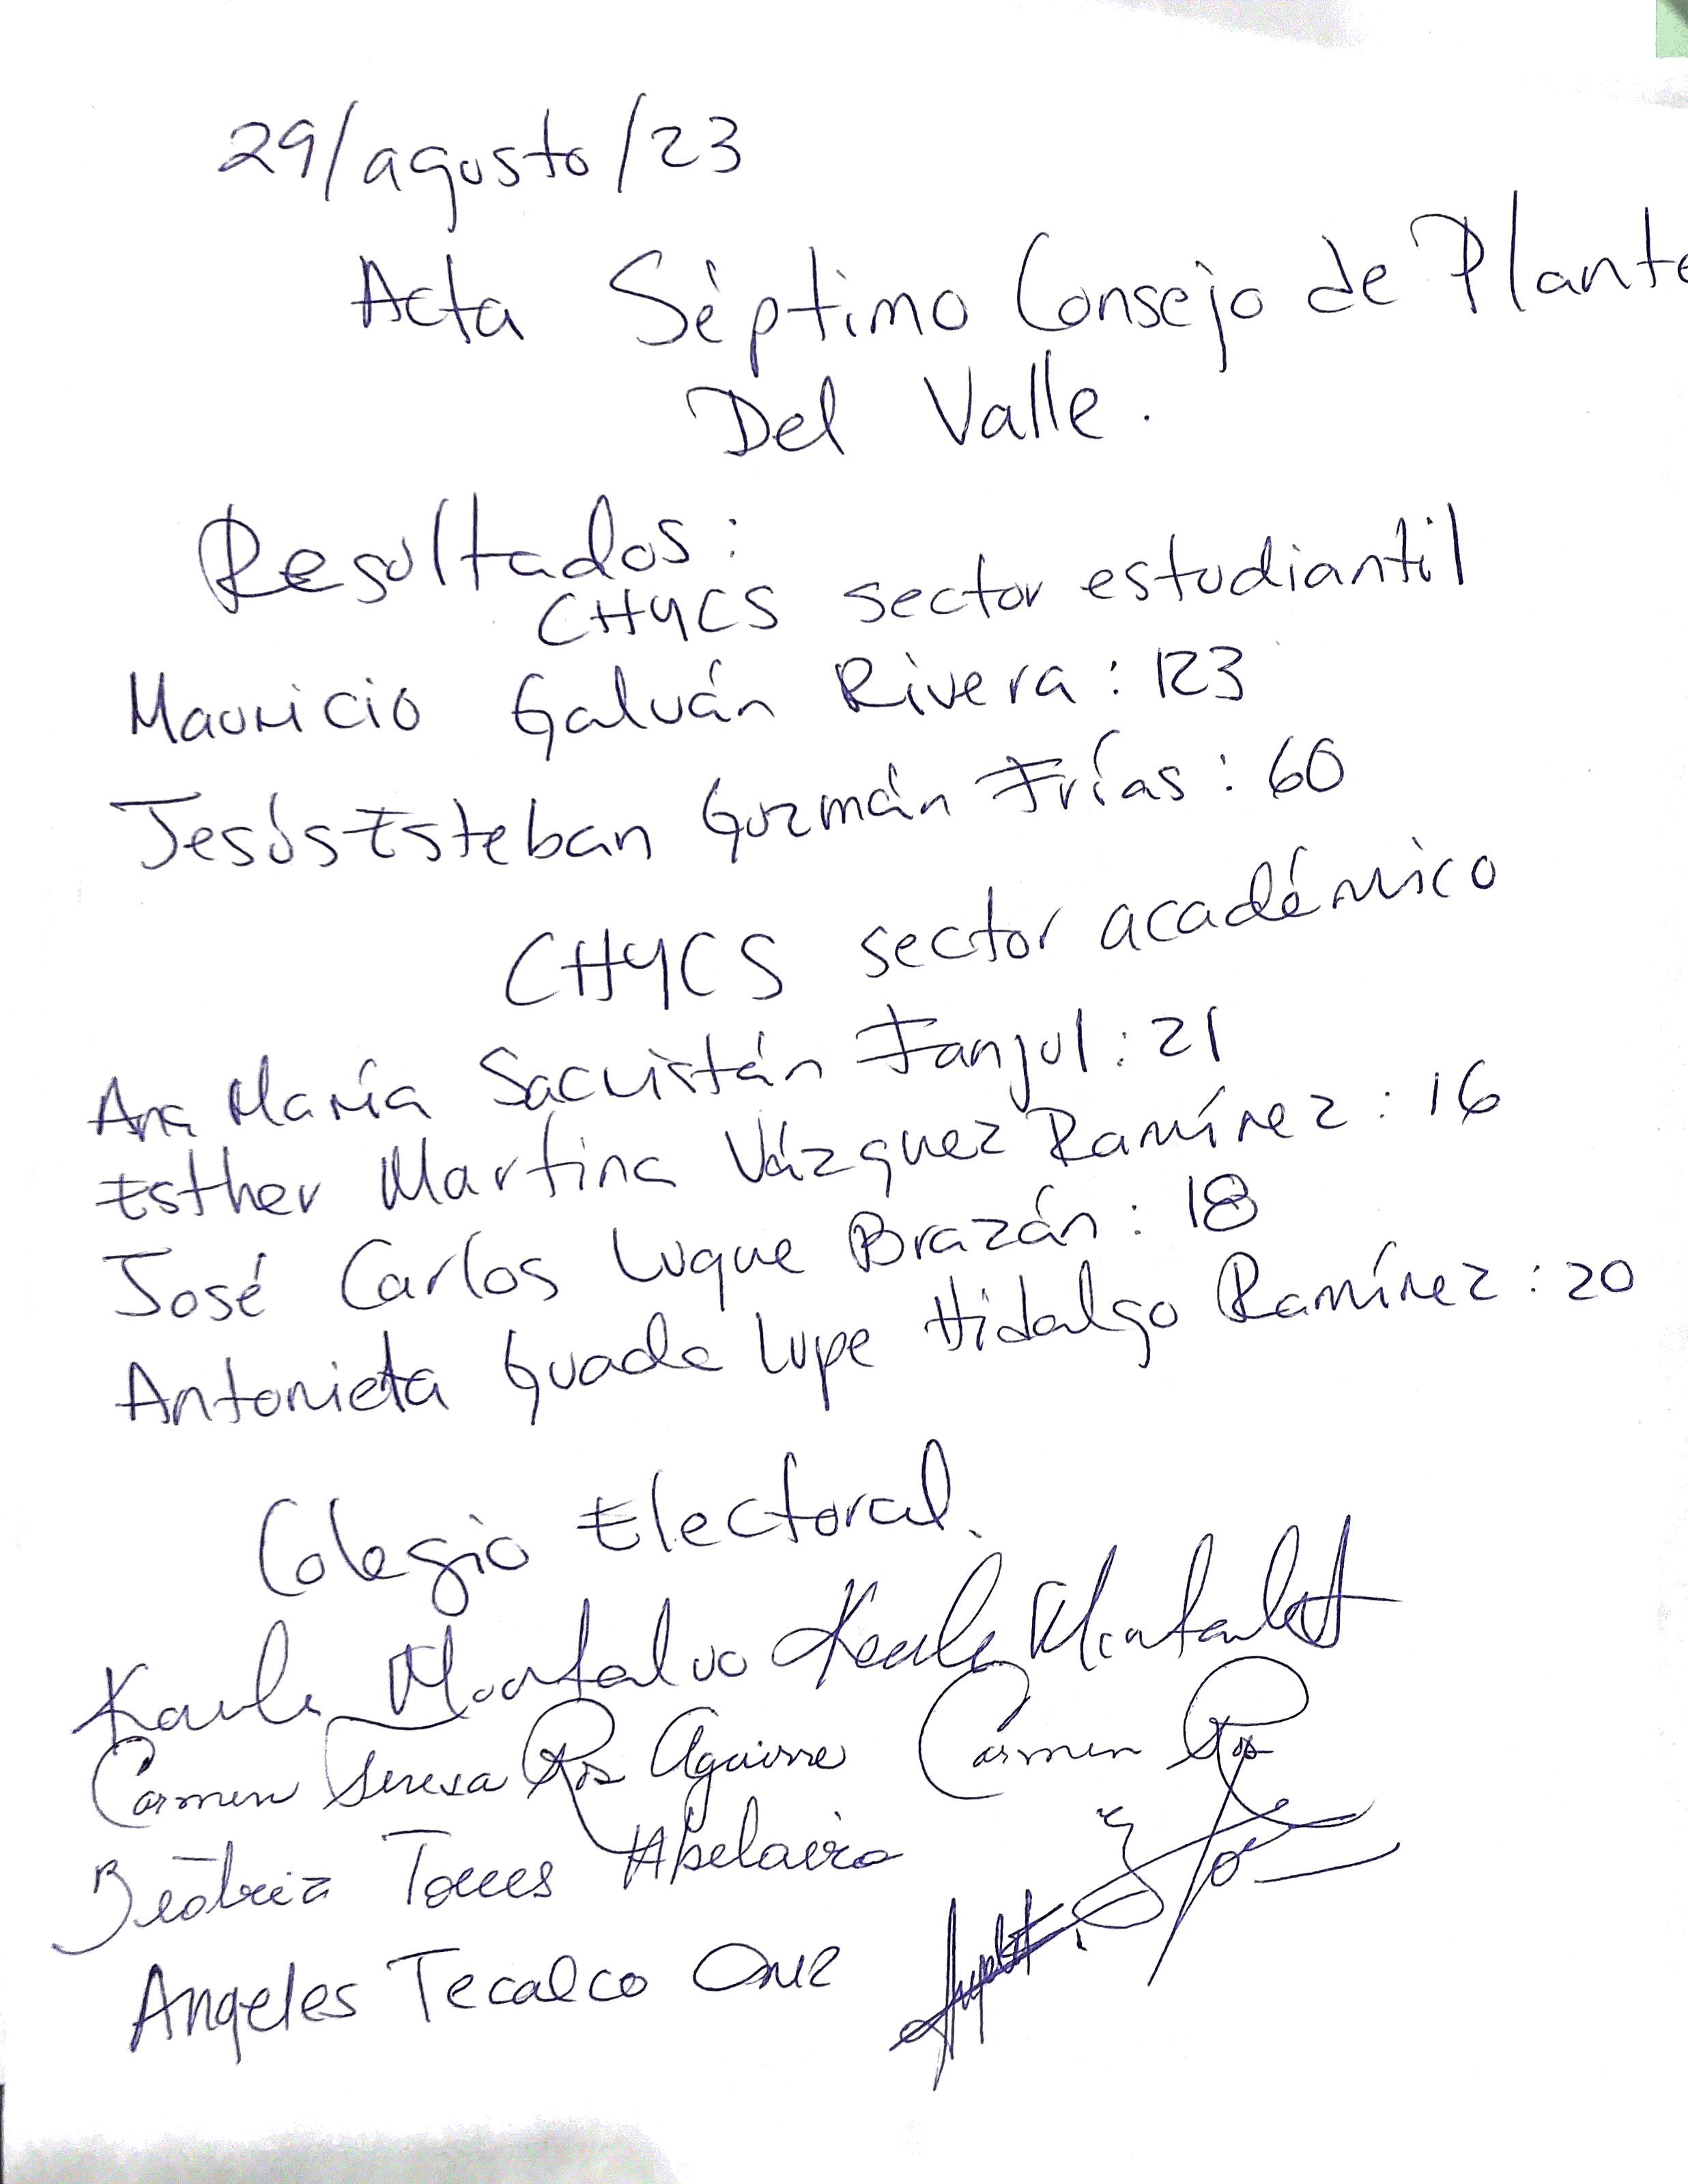 29/agosto/23
Acta Séptimo Consejo de Plante
Del Valle.
Resultados:
CHyCS sector estudiantil
Mauricio Galván Rivera: 123
Jesús Esteban Guzmán Frías: 60
CHyCS sector académico
Ana María Sacristán Fanjul: 21
Esther Martina Vázquez Ramírez: 16
José Carlos Luque Brazán: 18
Antonieta Guadalupe Hidalgo Ramírez: 20
Colegio Electoral.
Karla Montalvo Karla Montalvo
Carmen Teresa Ros Aguirre Carmen Ros
Beatriz Torres Abelaira
Angeles Tecalco Cruz